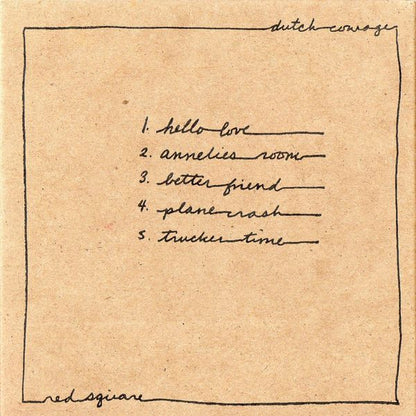 dutch courage
1. hello love
2. annelies room
3. better friend
4. plane crash
5. trucker time
red square